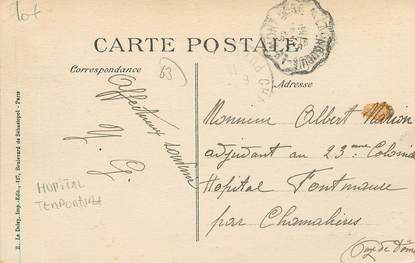 Lot
CARTE POSTALE
Correspondance
Adresse
63
Affectueux souvenir
Y. G.
HOPITAL
TEMPORAIRE
Monsieur Albert
adjudant au 23ème Colonial
Hopital Fontmaure
par Chamalières
(Puy de Dôme
E. Le Deley, Imp.-Edit., 127, Boulevard de Sébastopol - Paris